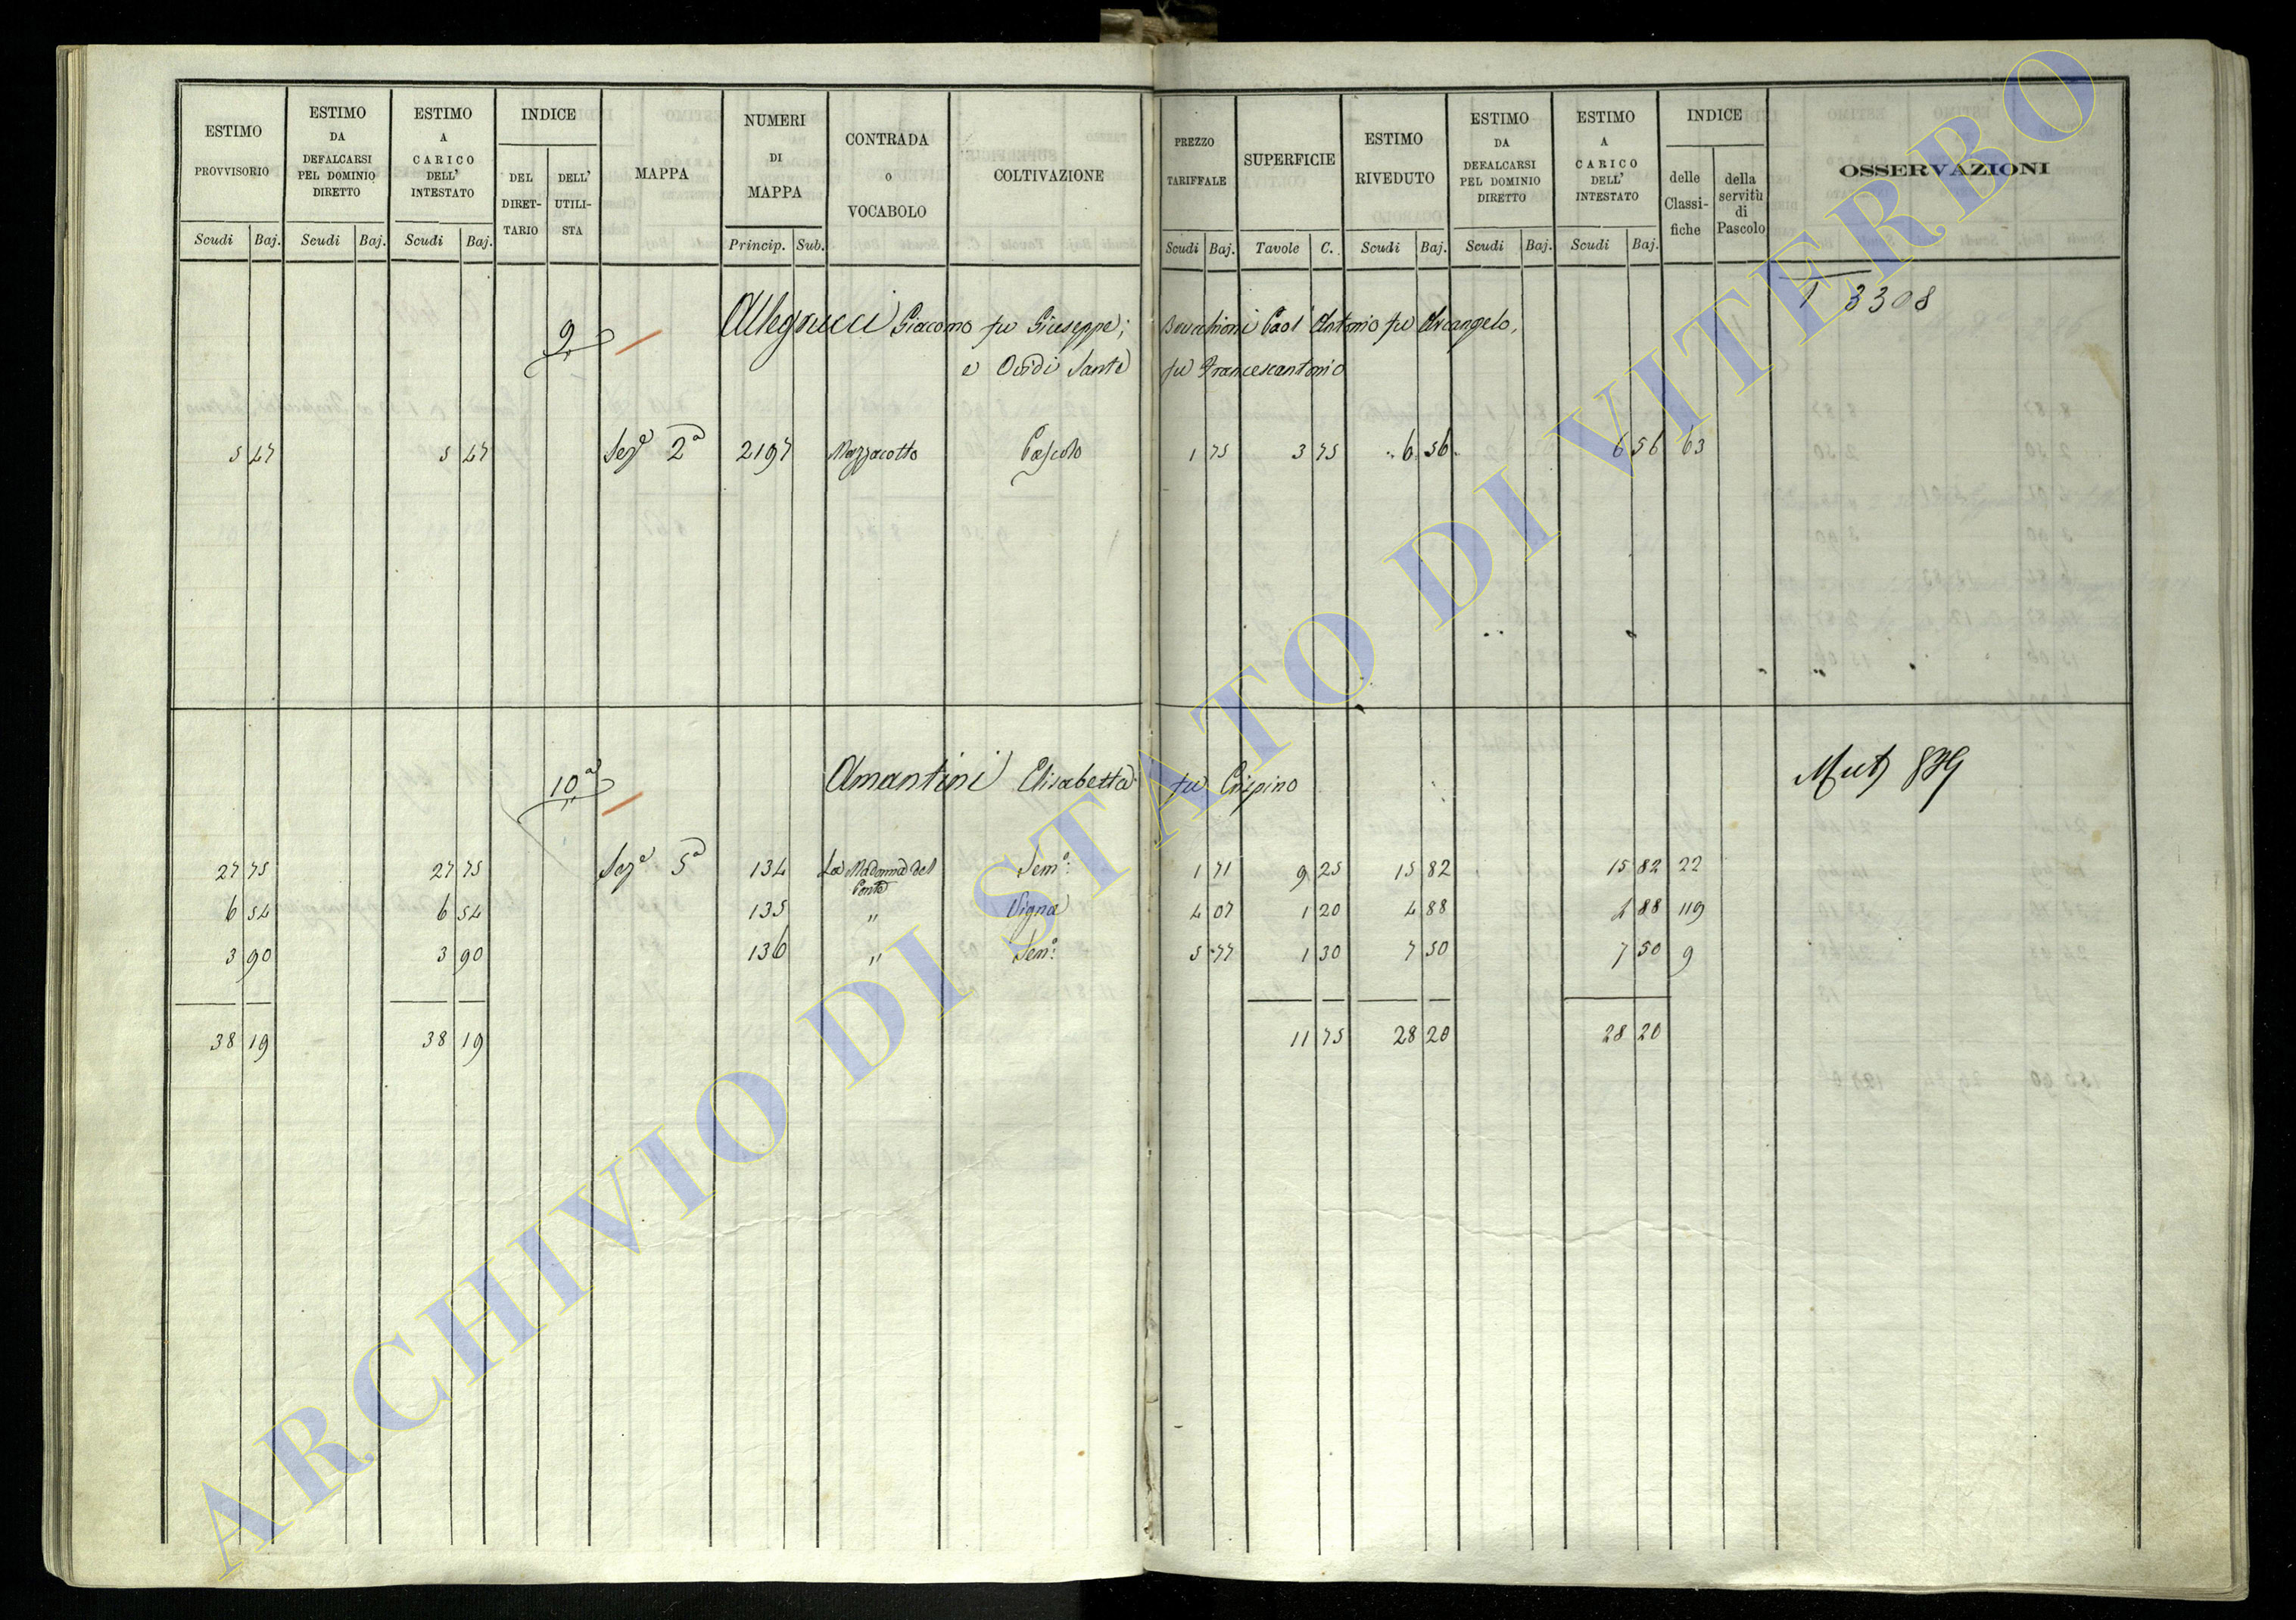 ESTIMO PROVVISORIO | ESTIMO DA DEFALCARSI PEL DOMINIO DIRETTO | ESTIMO A CARICO DELL' INTESTATO | INDICE | MAPPA | NUMERI DI MAPPA | CONTRADA O VOCABOLO | COLTIVAZIONE | PREZZO TARIFFALE | SUPERFICIE | ESTIMO RIVEDUTO | ESTIMO DA DEFALCARSI PEL DOMINIO DIRETTO | ESTIMO A CARICO DELL' INTESTATO | INDICE | OSSERVAZIONI
DEL DIRETTARIO | DELL' UTILISTA | delle Classifiche | della servitù di Pascolo
Scudi | Baj. | Scudi | Baj. | Scudi | Baj. | Princip. | Sub. | Scudi | Baj. | Tavole | C. | Scudi | Baj. | Scudi | Baj. | Scudi | Baj.
3308
9 Allegrucci Giacomo fu Giuseppe; Paol' Antonio fu Arcangelo,
e Ovidi Sante fu Francescantonio
5 47 | 5 47 | Sez.e 2a | 2197 | Mazzacotto | Pascolo | 1 75 | 3 75 | 6 56 | 6 56 | 63
10a Amantini Elisabetta fu Crispino
27 75 | 27 75 | Sez.e 5a | 134 | La Madonna del Ponte | Sem.o: | 1 71 | 9 25 | 15 82 | 15 82 | 22
6 54 | 6 54 | 135 | " | Vigna | 4 07 | 1 20 | 4 88 | 4 88 | 119
3 90 | 3 90 | 136 | " | Sem.o: | 5 77 | 1 30 | 7 50 | 7 50 | 9
38 19 | 38 19 | 11 75 | 28 20 | 28 20
ARCHIVIO DI STATO DI VITERBO